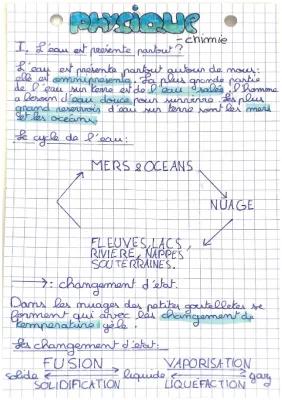 PHYSIQUE
-chimie
I. L'eau est présente partout ?
L'eau est présente partout autour de nous:
elle est omniprésente. La plus grande partie
de l'eau sur terre est de l'eau salée, l'homme
a besoin d'eau douce pour survivre. Les plus
grand reservois d'eau sur terre sont les mers
et les océans.
Le cycle de l'eau:
MERS & OCEANS
NUAGE
FLEUVES, LACS,
RIVIERE, NAPPES
SOUTERRAINES.
→: changement d'état.
Dans les nuages des petites goutelletes se
forment qui avec les changement de
température gèle.
Les changement d'état:
FUSION VAPORISATION
solide liquide gaz
SOLIDIFICATION LIQUEFACTION